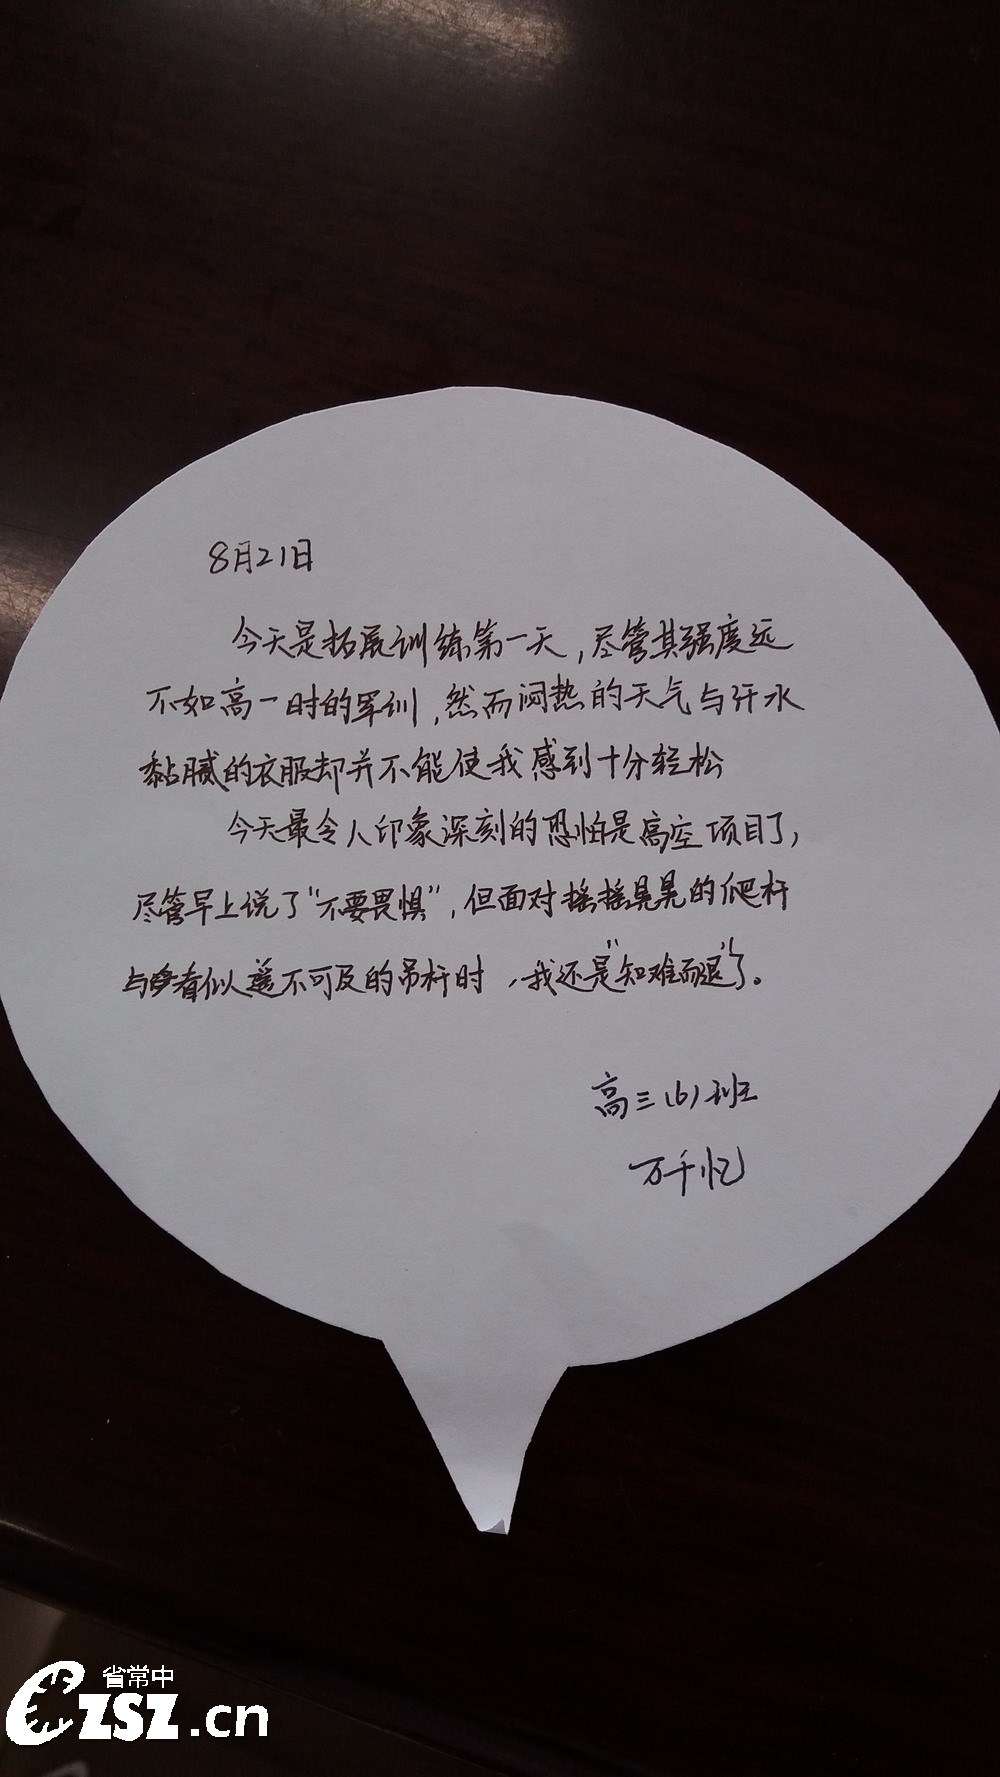 8月21日
今天是拓展训练第一天,尽管其强度远
不如高一时的军训,然而闷热的天气与汗水
黏腻的衣服却并不能使我感到十分轻松
今天最令人印象深刻的恐怕是高空项目了,
尽管早上说了“不要畏惧”,但面对摇摇晃晃的爬杆
与看似遥不可及的吊杆时,我还是“知难而退”了。
高三(6)班
万千忆
省常中
CZSZ.cn